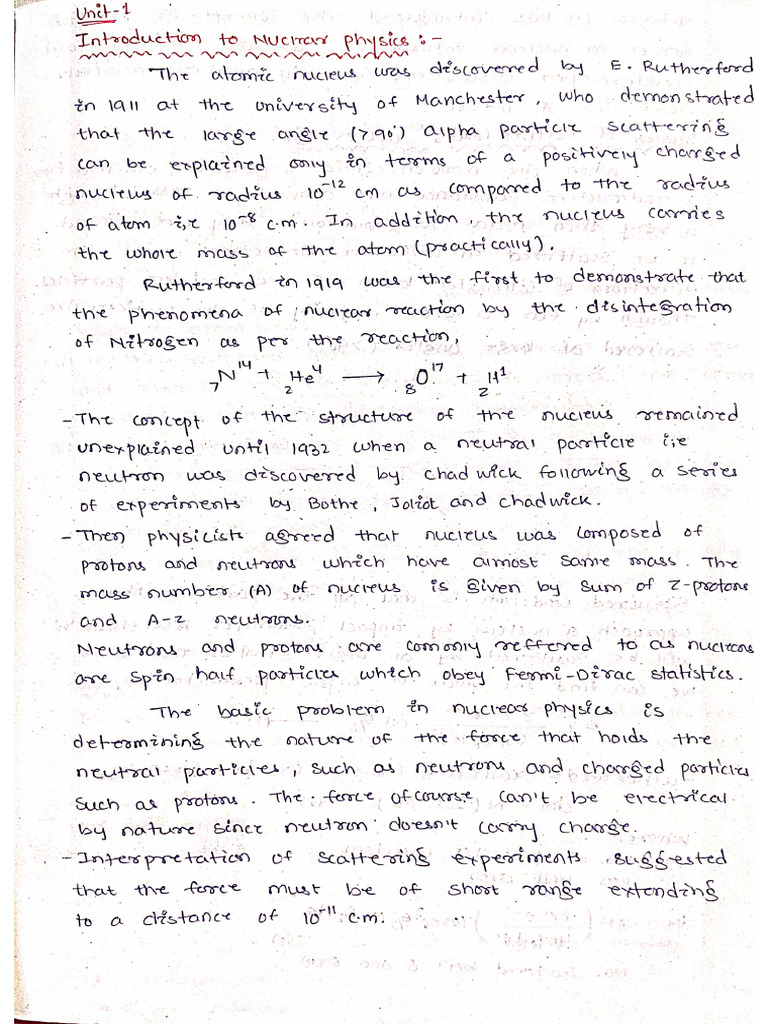 Unit-1
Introduction to Nuclear physics :-
The atomic nucleus was discovered by E. Rutherford
in 1911 at the university of Manchester, who demonstrated
that the large angle (>90°) alpha particle scattering
can be explained only in terms of a positively charged
nucleus of radius 10⁻¹² cm as compared to the radius
of atom i,e 10⁻⁸ c.m. In addition, the nucleus carries
the whole mass of the atom (practically).
Rutherford in 1919 was the first to demonstrate that
the phenomena of nuclear reaction by the disintegration
of Nitrogen as per the reaction,
₇N¹⁴ + ₂He⁴ → ₈O¹⁷ + ₂H¹
- The concept of the structure of the nucleus remained
unexplained until 1932 when a neutral particle i;e
neutron was discovered by chadwick following a series
of experiments by Bothe, Joliot and chadwick.
- Then physicists agreed that nucleus was composed of
protons and neutrons which have almost same mass. The
mass number (A) of nucleus is given by sum of Z-protons
and A-Z neutrons.
Neutrons and protons are commonly reffered to as nucleons
are spin half particles which obey Fermi-Dirac statistics.
The basic problem in nuclear physics is
determining the nature of the force that holds the
neutral particles, such as neutrons and charged particles
such as protons. The force ofcourse can't be electrical
by nature since neutron doesn't carry charge.
- Interpretation of scattering experiments suggested
that the force must be of short range extending
to a distance of 10⁻¹¹ c.m.